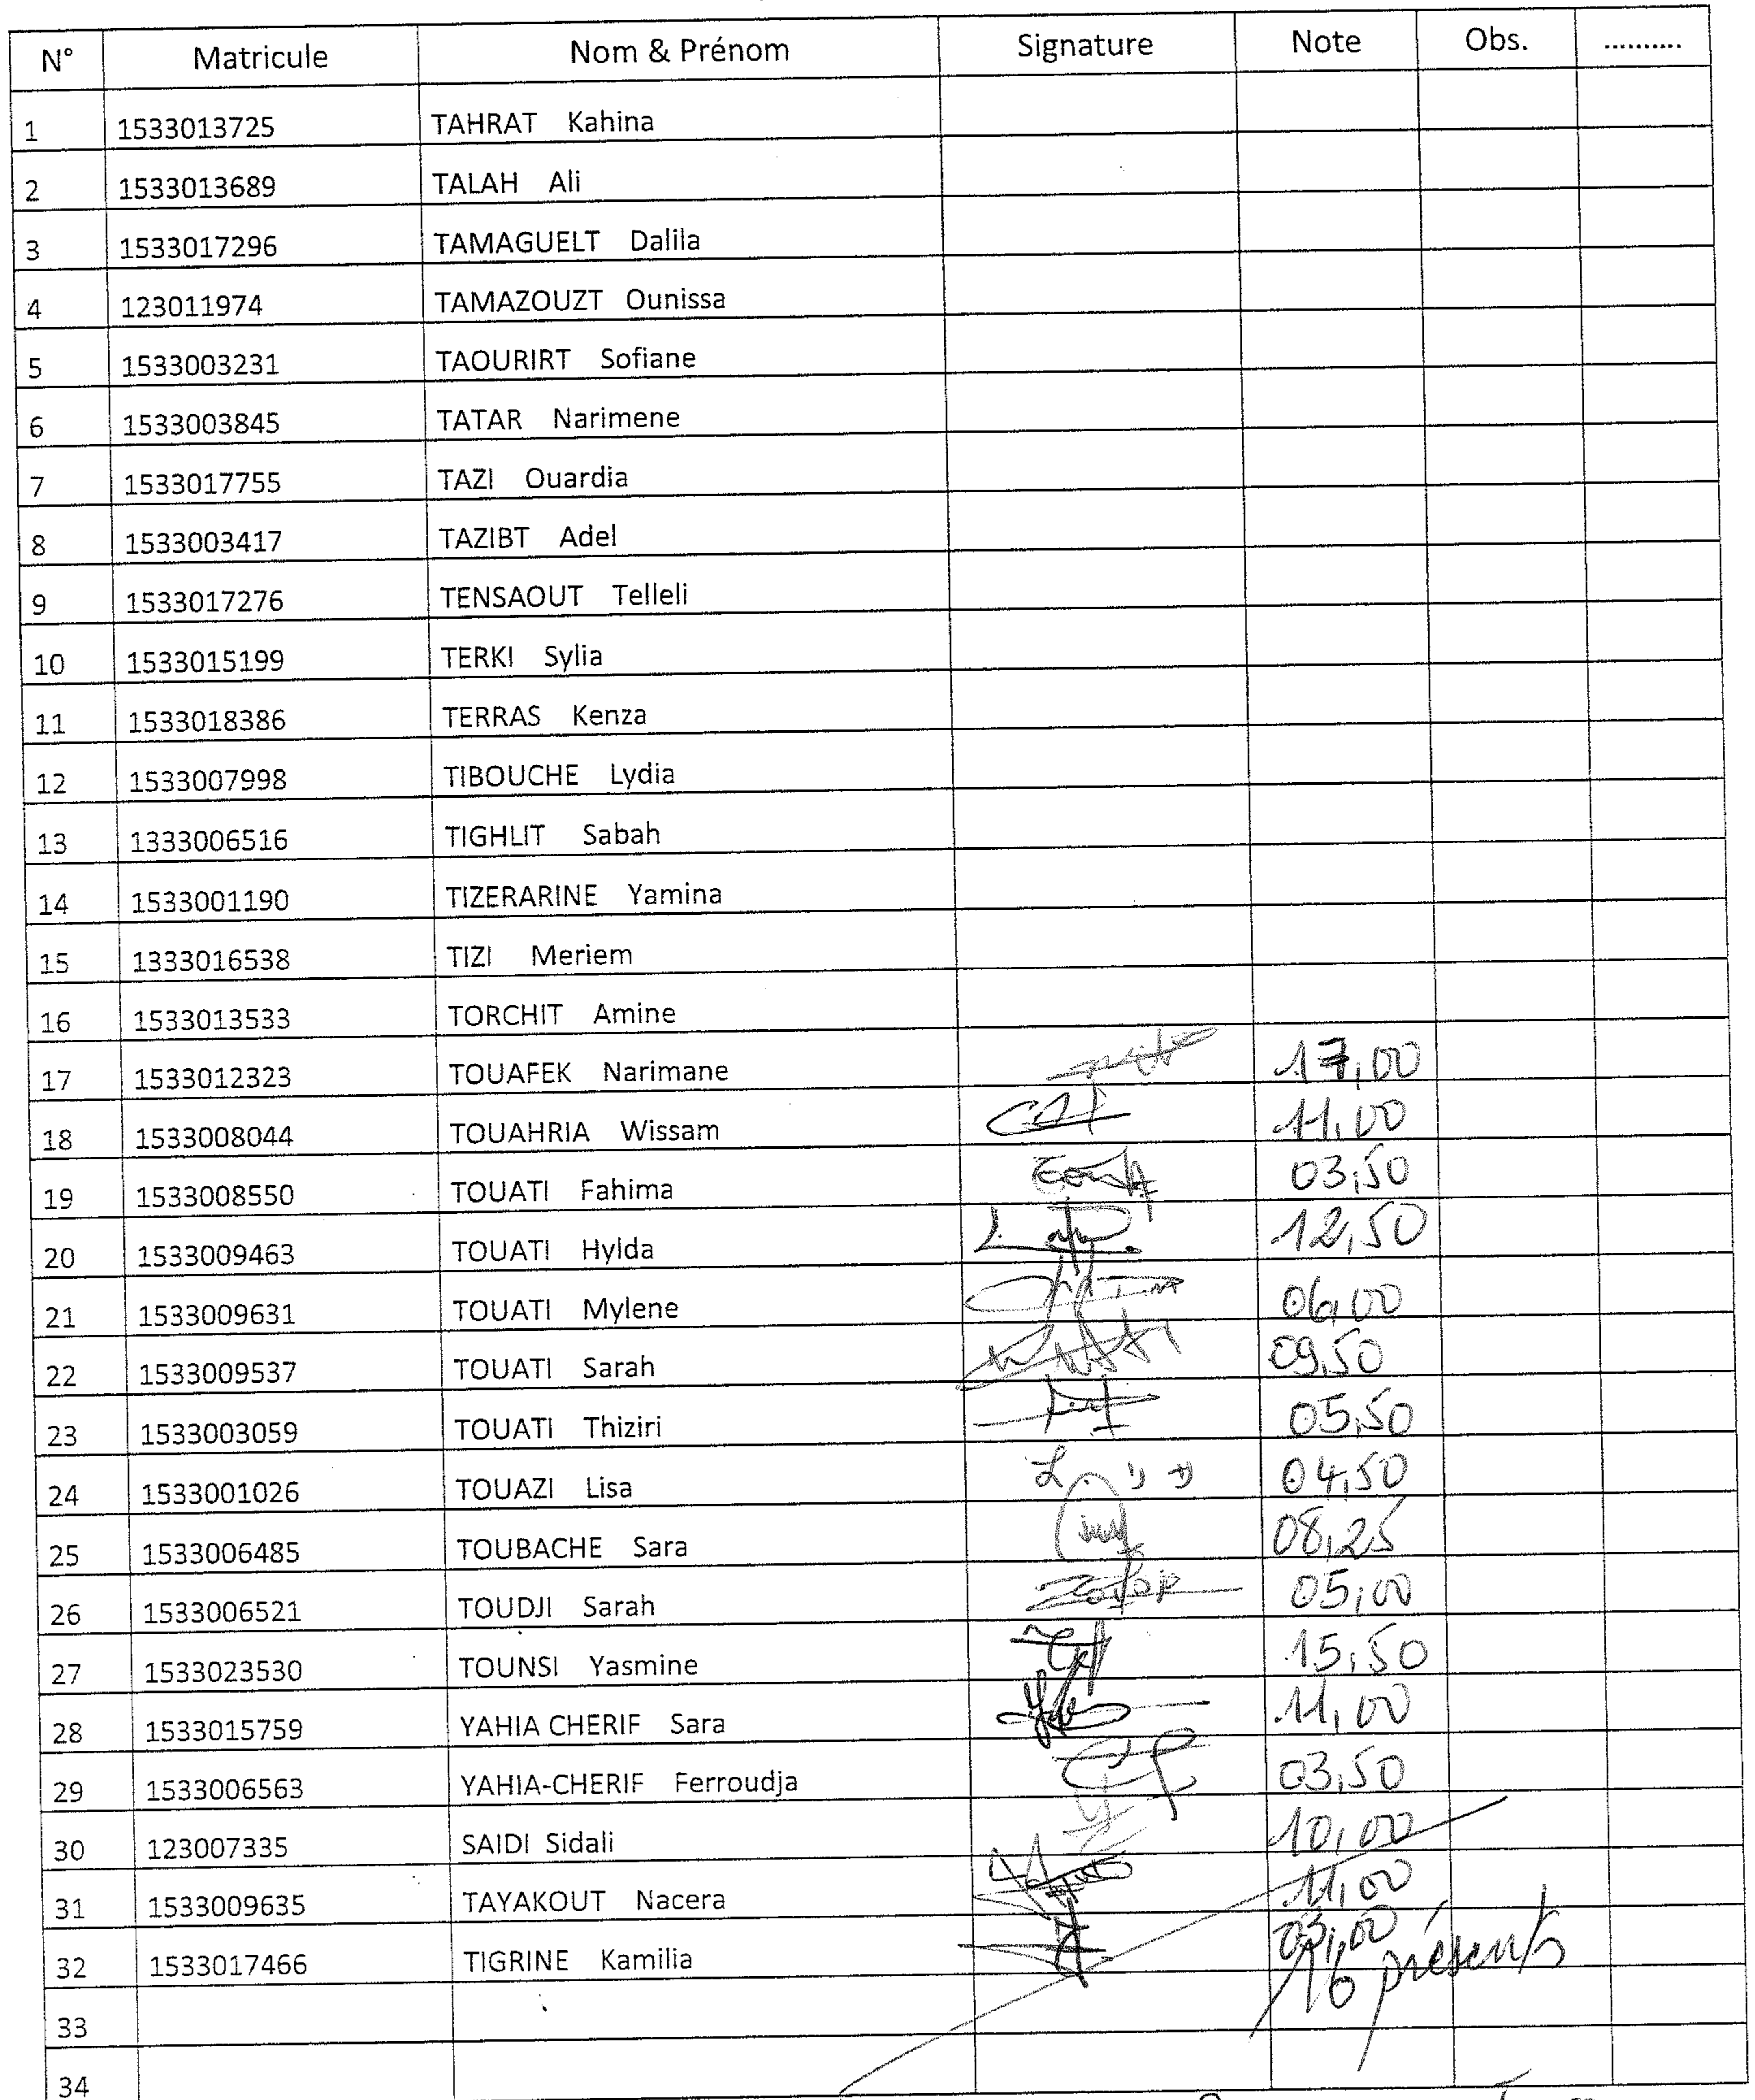 N° Matricule Nom & Prénom Signature Note Obs. ..........
1 1533013725 TAHRAT Kahina
2 1533013689 TALAH Ali
3 1533017296 TAMAGUELT Dalila
4 123011974 TAMAZOUZT Ounissa
5 1533003231 TAOURIRT Sofiane
6 1533003845 TATAR Narimene
7 1533017755 TAZI Ouardia
8 1533003417 TAZIBT Adel
9 1533017276 TENSAOUT Telleli
10 1533015199 TERKI Sylia
11 1533018386 TERRAS Kenza
12 1533007998 TIBOUCHE Lydia
13 1333006516 TIGHLIT Sabah
14 1533001190 TIZERARINE Yamina
15 1333016538 TIZI Meriem
16 1533013533 TORCHIT Amine
17 1533012323 TOUAFEK Narimane 17,00
18 1533008044 TOUAHRIA Wissam 11,00
19 1533008550 TOUATI Fahima 03,50
20 1533009463 TOUATI Hylda 12,50
21 1533009631 TOUATI Mylene 06,00
22 1533009537 TOUATI Sarah 09,50
23 1533003059 TOUATI Thiziri 05,50
24 1533001026 TOUAZI Lisa 04,50
25 1533006485 TOUBACHE Sara 08,25
26 1533006521 TOUDJI Sarah 05,00
27 1533023530 TOUNSI Yasmine 15,50
28 1533015759 YAHIA CHERIF Sara 11,00
29 1533006563 YAHIA-CHERIF Ferroudja 03,50
30 123007335 SAIDI Sidali 10,00
31 1533009635 TAYAKOUT Nacera 11,00
32 1533017466 TIGRINE Kamilia 03,00
16 présents
33
34